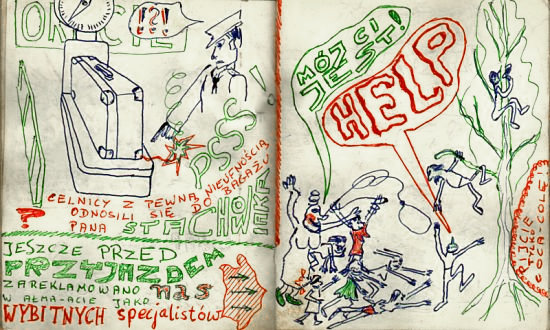 OKĘCIE
!?!
PSSS
!
CELNICY Z PEWNĄ NIEUFNOŚCIĄ
ODNOSILI SIĘ DO BAGAŻU
PANA STACHOWIAKA
?
JESZCZE PRZED
PRZYJAZDEM
ZAREKLAMOWANO nas
W AŁMA-ACIE JAKO:
WYBITNYCH specjalistów
MÓJ CI
JEST!
HELP
PIJCIE
COCA COLE!